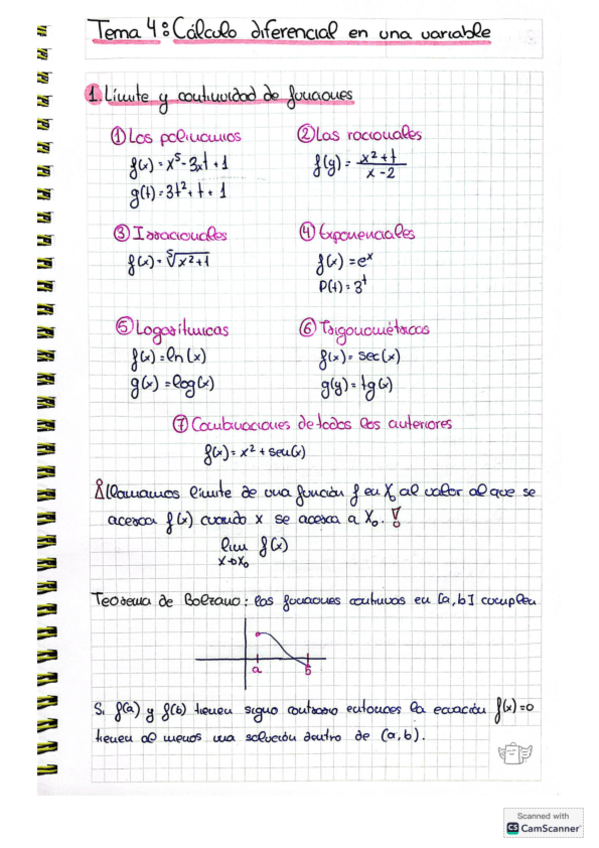 Tema 4: Cálculo diferencial en una variable
1. Límite y continuidad de funciones
① Los polinomios
f(x) = x⁵ - 3xt + 1
g(t) = 3t² + t + 1
② Las racionales
f(y) = (x² + t)/(x - 2)
③ Irracionales
f(x) = ⁵√(x² + 1)
④ Exponenciales
f(x) = eˣ
P(t) = 3ᵗ
⑤ Logarítmicas
f(x) = ln(x)
g(x) = log(x)
⑥ Trigonométricas
f(x) = sec(x)
g(y) = tg(x)
⑦ Combinaciones de todos los anteriores
f(x) = x² + sen(x)
¡Llamamos límite de una función f en X₀ al valor al que se
acerca f(x) cuando x se acerca a X₀.!
lim f(x)
x→x₀
Teorema de Bolzano: las funciones continuas en [a,b] cumplen
a
b
Si f(a) y f(b) tienen signo contrario entonces la ecuación f(x)=0
tienen al menos una solución dentro de (a,b).
Scanned with
CS CamScanner